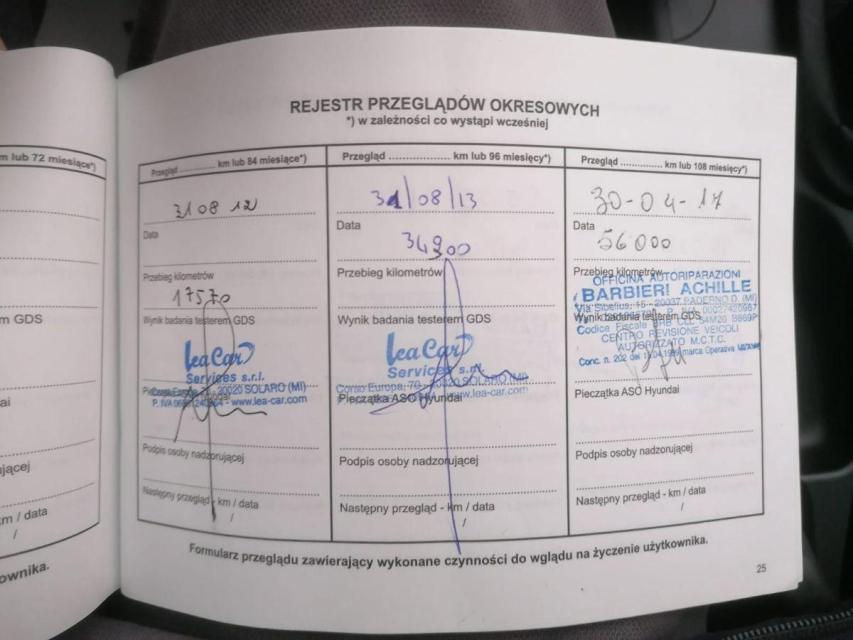 REJESTR PRZEGLĄDÓW OKRESOWYCH
*) w zależności co wystąpi wcześniej
m lub 72 miesiące*)
m GDS
ai
jącej
m / data
/
ownika.
Przegląd .............. km lub 84 miesiące*)
31 08 12
Data
Przebieg kilometrów
17570
Wynik badania testerem GDS
LeaCar
Services s.r.l.
Corso Europa, 20020 SOLARO (MI)
P. IVA - www.lea-car.com
Podpis osoby nadzorującej
Następny przegląd - km / data
/
Przegląd .............. km lub 96 miesięcy*)
31/08/13
Data
34900
Przebieg kilometrów
Wynik badania testerem GDS
LeaCar
Services s.r.l.
Corso Europa, 70 - 20020 SOLARO (MI)
Pieczątka ASO Hyundai www.lea-car.com
Podpis osoby nadzorującej
Następny przegląd - km / data
/
Przegląd .............. km lub 108 miesięcy*)
30-04-17
Data
56000
Przebieg kilometrów
OFFICINA AUTORIPARAZIONI
BARBIERI ACHILLE
Via Sibelius, 15 - 20037 PADERNO D. (MI)
Wynik badania testerem GDS
Codice Fiscale BRB CLL 54M20 B869P
CENTRO REVISIONE VEICOLI
AUTORIZZATO M.C.T.C.
Conc. n. 202 del marca Operativa
Pieczątka ASO Hyundai
Podpis osoby nadzorującej
Następny przegląd - km / data
/
Formularz przeglądu zawierający wykonane czynności do wglądu na życzenie użytkownika.
25